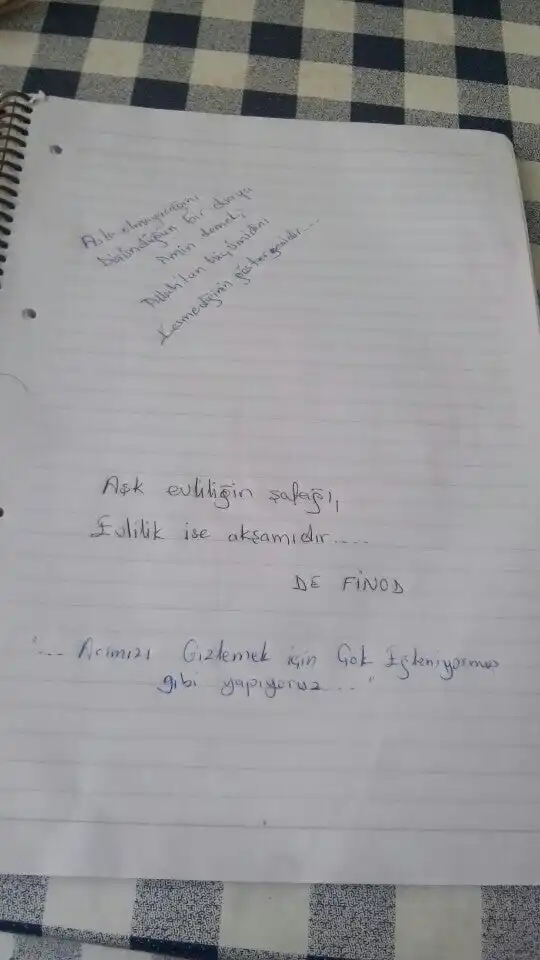 Asla olmayacağını
Düşündüğün bir duaya
Amin demek,
Allah'tan büyümidini
Kesmediğinin göstergesidir....
Aşk evliliğin şafağı,
Evlilik ise akşamıdır.....
DE FİNOD
"... Acımızı Gizlemek için Çok Eğleniyormuş
gibi yapıyoruz..."